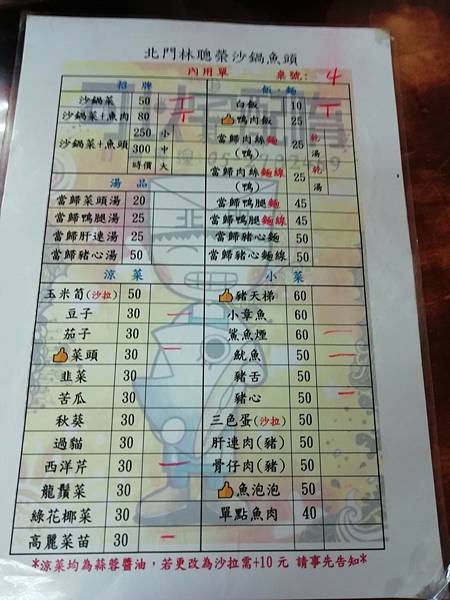 北門林聰榮沙鍋魚頭
內用單 桌號: 4
招牌 飯、麵
沙鍋菜 50 白飯 10
沙鍋菜+魚肉 80 鴨肉飯 25
沙鍋菜+魚頭 250 小 當歸肉絲麵(鴨) 25 乾 湯
300 中
時價 大 當歸肉絲麵線(鴨) 25 乾 湯
湯品
當歸菜頭湯 20 當歸鴨腿麵 45
當歸鴨腿湯 25 當歸鴨腿麵線 45
當歸肝連湯 25 當歸豬心麵 50
當歸豬心湯 50 當歸豬心麵線 50
涼菜 小菜
玉米筍(沙拉) 50 豬天梯 60
豆子 30 小章魚 60
茄子 30 鯊魚煙 60
菜頭 30 魷魚 50
韭菜 30 豬舌 50
苦瓜 30 豬心 50
秋葵 30 三色蛋(沙拉) 50
過貓 30 肝連肉(豬) 50
西洋芹 30 骨仔肉(豬) 50
龍鬚菜 30 魚泡泡 50
綠花椰菜 30 單點魚肉 40
高麗菜苗 30
*涼菜均為蒜蓉醬油，若更改為沙拉需+10元 請事先告知*